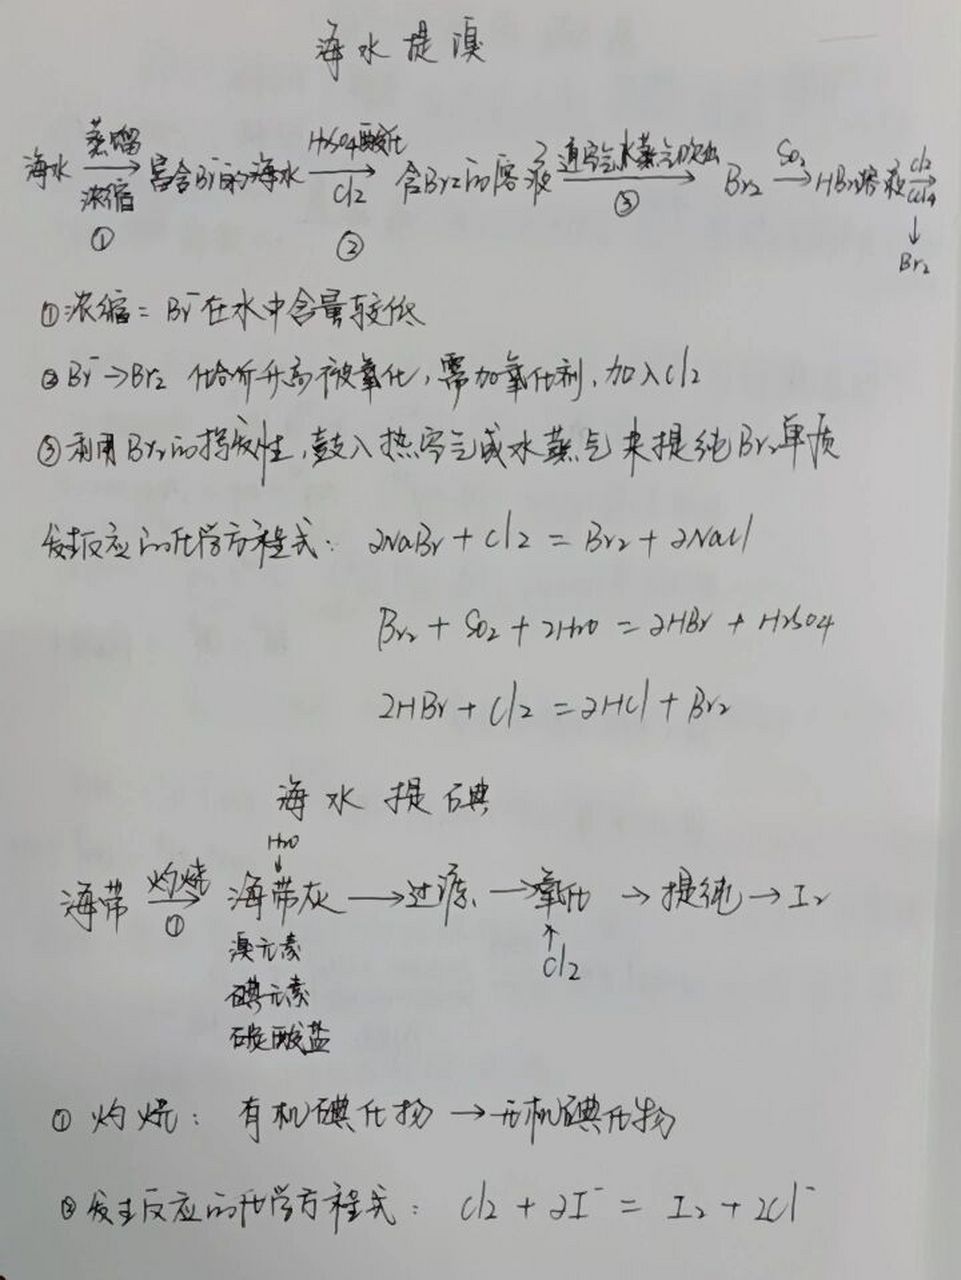 海水提溴
海水 蒸馏 浓缩 ① → 富含Br⁻的海水 H₂SO₄酸化 Cl₂ ② → 含Br₂的溶液 通空气水蒸气吹出 ③ → Br₂ SO₂ → HBr溶液 Cl₂ CCl₄ → ↓ Br₂
①浓缩：Br⁻在水中含量较低
②Br⁻→Br₂ 化合价升高被氧化，需加氧化剂，加入Cl₂
③利用Br₂的挥发性，鼓入热空气或水蒸气来提纯Br₂单质
发生反应的化学方程式： 2NaBr + Cl₂ = Br₂ + 2NaCl
Br₂ + SO₂ + 2H₂O = 2HBr + H₂SO₄
2HBr + Cl₂ = 2HCl + Br₂
海水提碘
H₂O
↓
海带 灼烧 ① → 海带灰 → 过滤 → 氧化 → 提纯 → I₂
↑
Cl₂
溴元素
碘元素
碳酸盐
① 灼烧： 有机碘化物 → 无机碘化物
②发生反应的化学方程式： Cl₂ + 2I⁻ = I₂ + 2Cl⁻